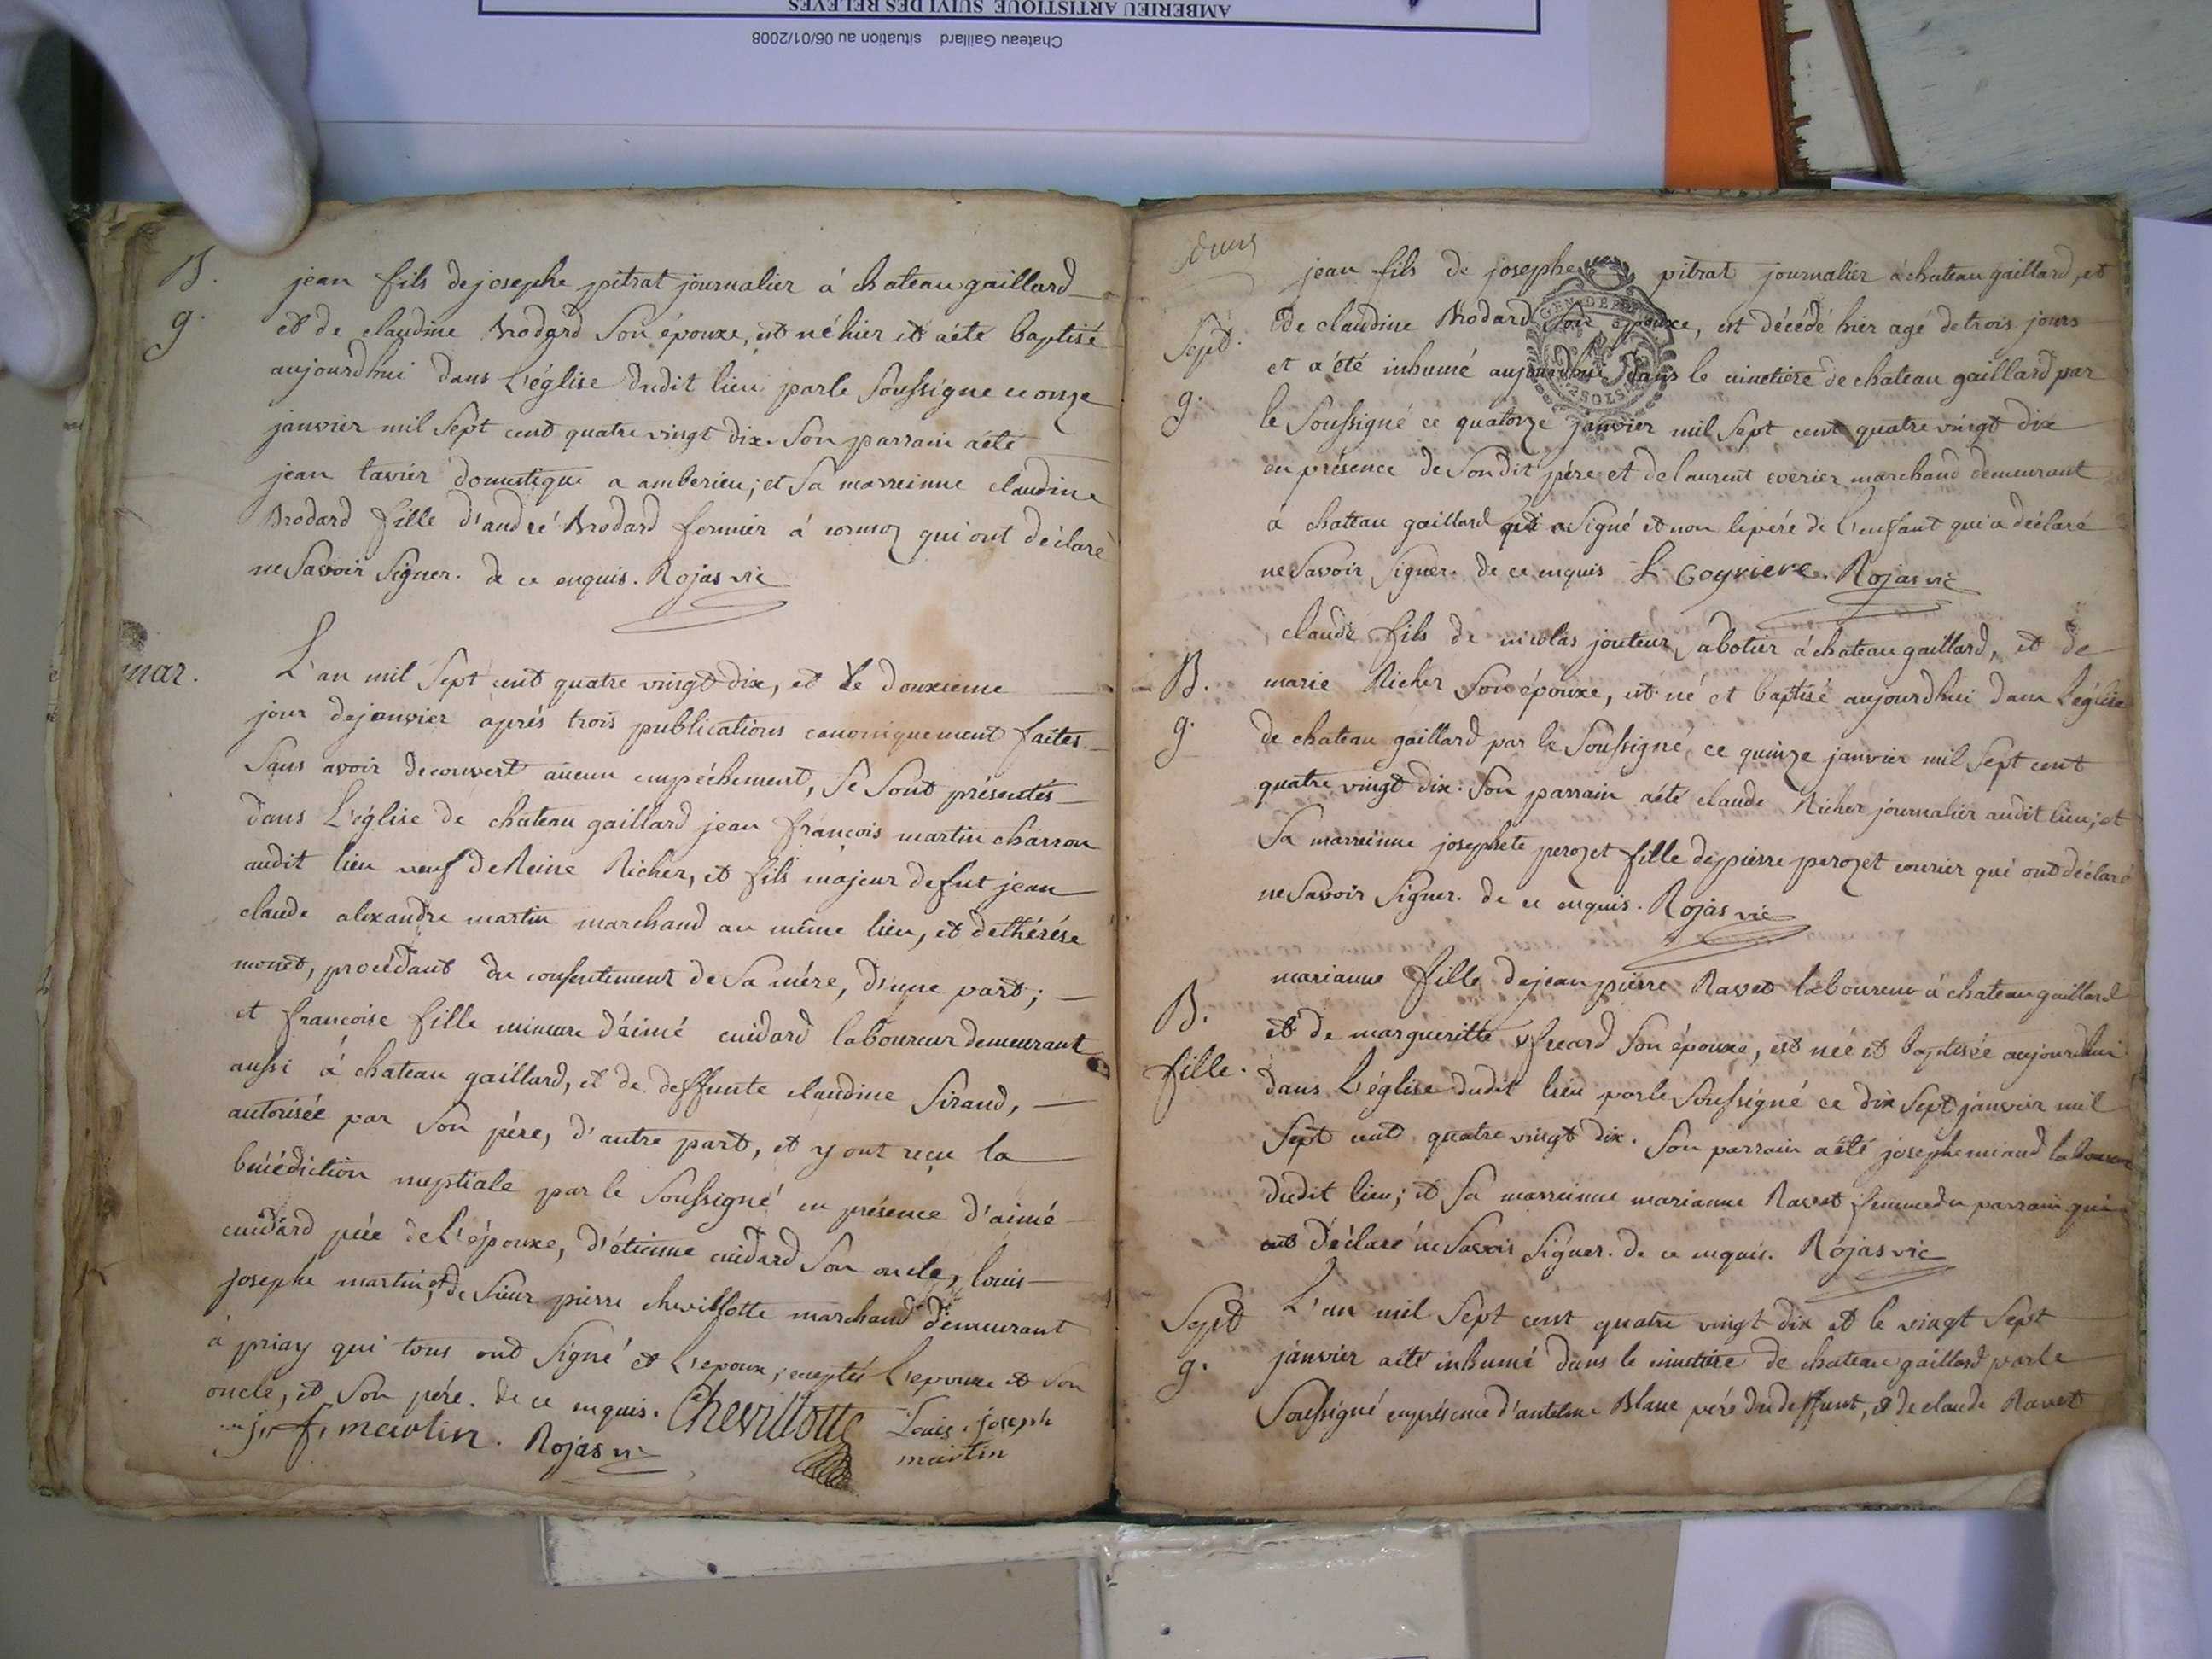 AMBERIEU ARTISTIQUE SUIVI DES RELEVES
Chateau Gaillard situation au 06/01/2008
B.
g.
jean fils de josephe pitrat journalier á chateau gaillard
et de claudine Brodard son épouxe, est né hier et aété baptisé
aujourdhui dans l'église dudit lieu par le soussigné ce onze
janvier mil sept cent quatre vingt dix. son parrain aété
jean tavier domestique a amberieu; et sa marreinne claudine
Brodard fille d'andré Brodard fermier á cormoz qui ont déclaré
ne savoir signer. de ce enquis. Rojas vic
mar.
L'an mil sept cent quatre vingt dix, et le douxieme
jour de janvier aprés trois publications canoniquement faites
sans avoir decouvert aucun empéchement, se sont présentés
dans l'église de chateau gaillard jean francois martin charron
audit lieu veuf de Reine Richer, et fils majeur de fut jean
claude alexandre martin marchand au même lieu, et de thérése
monet, procédant du consentement de sa mére, d'une part;
et francoise fille mineure d'aimé cuidard laboureur demeurant
aussi á chateau gaillard, et de deffunte claudine Sirand,
autorisée par son pére, d'autre part, et y ont reçu la
bénédiction nuptiale par le soussigné en présence d'aimé
cuidard pére de l'épouxe, d'étienne cuidard son oncle, louis
josephe martin, et de sieur pierre chevillotte marchand demeurant
á priay qui tous ont signé et l'epoux, exceptés l'epouxe et son
oncle, et son pére. de ce enquis. Chevillotte Louis joseph
j. f. martin. Rojas vi martin
jean fils de josephe pitrat journalier á chateau gaillard, et
Sept.
g.
de claudine Brodard son épouxe, est décédé hier agé de trois jours
et a été inhumé aujourdhui dans le cimetière de chateau gaillard par
le soussigné ce quatorze janvier mil sept cent quatre vingt dix
en présence de son dit pére et de laurent coverier marchand demeurant
á chateau gaillard qui a signé et non le pére de l'enfant qui a déclaré
ne savoir signer. de ce enquis L Coyriere. Rojas vic
B.
g.
claude fils de nicolas jouteur sabotier á chateau gaillard, et de
marie Richer son épouxe, est né et baptisé aujourdhui dans l'église
de chateau gaillard par le soussigné, ce quinze janvier mil sept cent
quatre vingt dix: son parrain aété claude Richer journalier audit lieu; et
sa marreinne josephete perozet fille de pierre perozet courier qui ont déclaré
ne savoir signer. de ce enquis. Rojas vic
B.
fille.
marianne fille de jean pierre Ravet laboureur á chateau gaillard
et de margueritte son épouxe, est née et baptisée aujourdhui
dans l'église dudit lieu par le soussigné ce dix sept janvier mil
sept cent quatre vingt dix. son parrain aété josephe miand laboureur
dudit lieu; et sa marreinne marianne Ravet femme du parrain qui
ont déclaré ne savoir signer. de ce enquis. Rojas vic
Sept
g.
L'an mil sept cent quatre vingt dix et le vingt sept
janvier aété inhumé dans le cimetière de chateau gaillard par le
soussigné en présence d'antelme Blanc pére du deffunt, et de claude Ravet